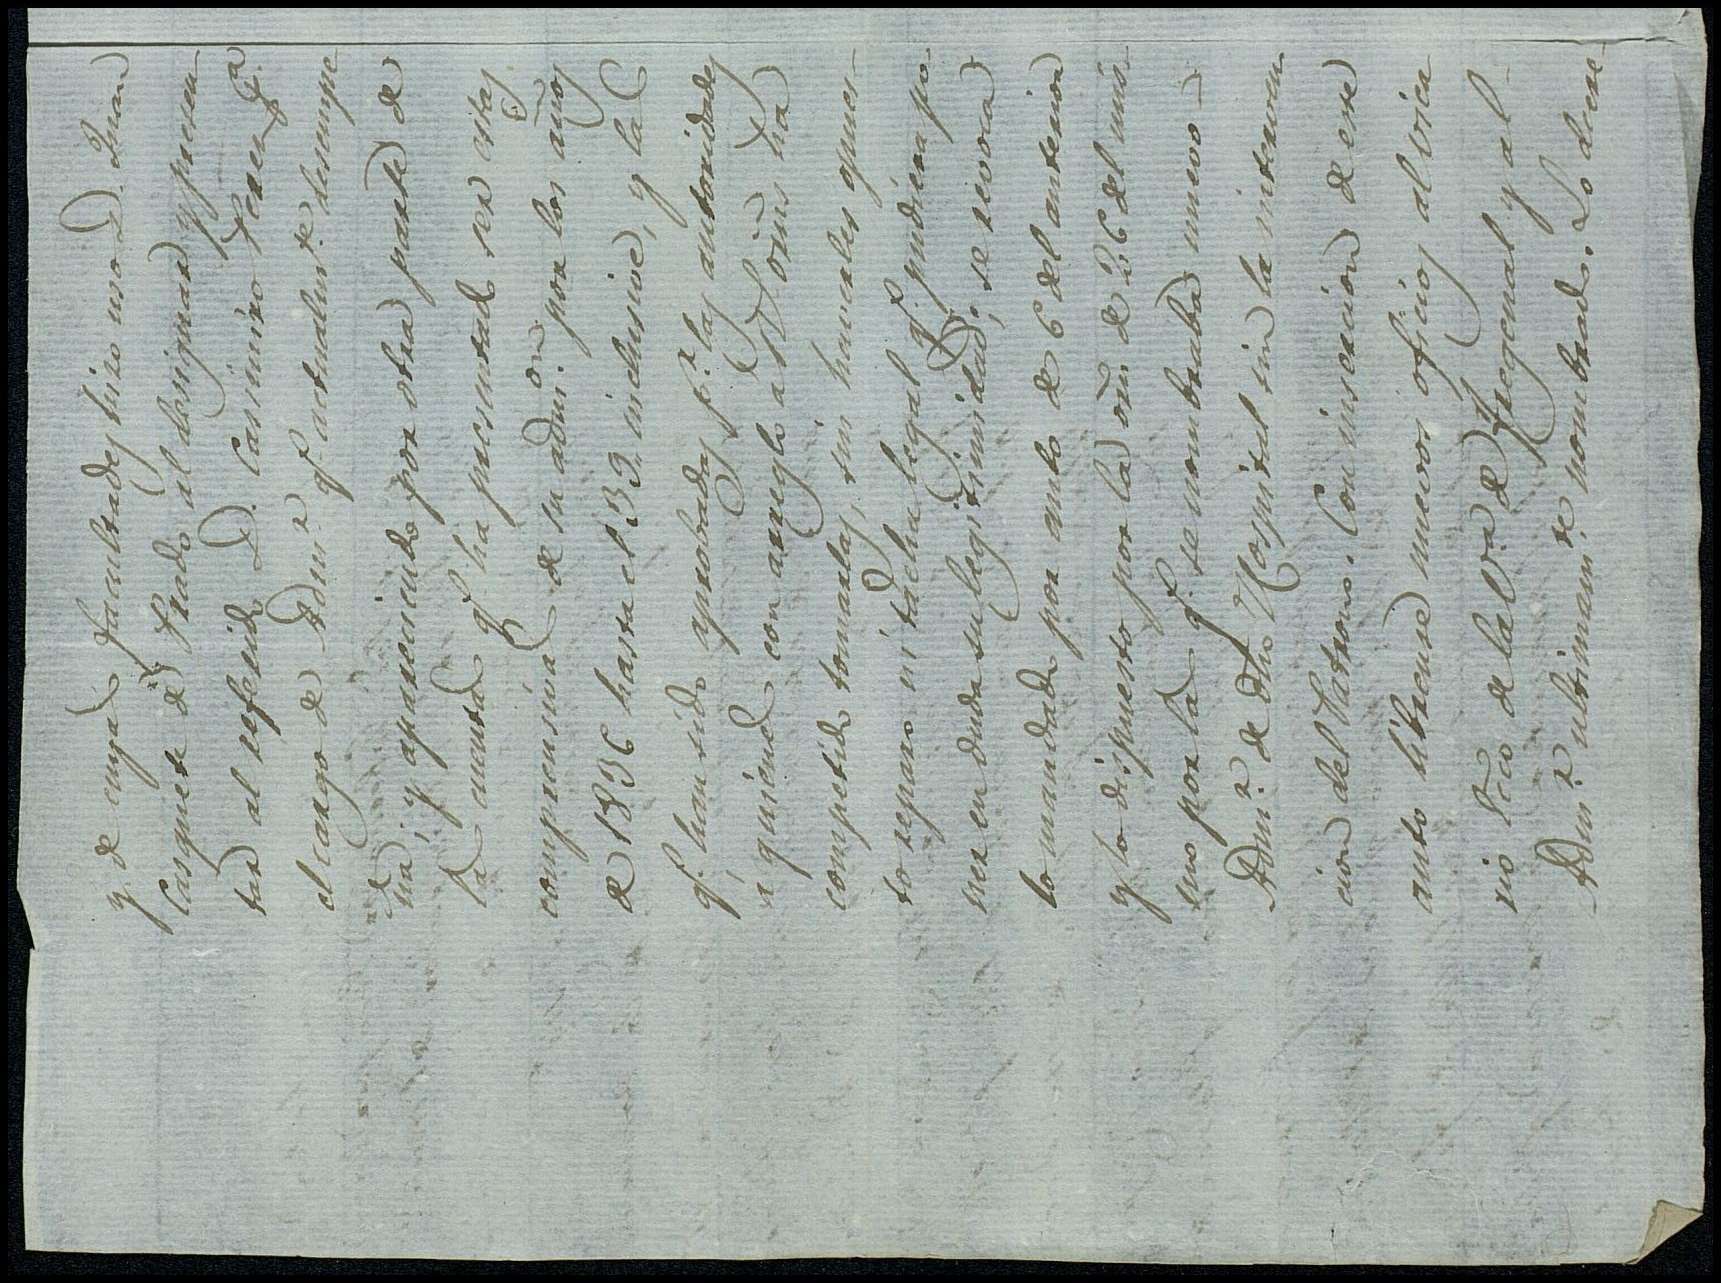 y de cuyas facultades hizo uso D. Juan
Casquete de Prado al designar y presen
tar al referido D. Casimiro
el cargo de Adm.r q.e actualm.te desempe
ña; y apareciendo por otra parte de
la cuenta q.e ha presentado ser estas
comprensivas de su adm.on por los años
de 1836 hasta el 39 inclusive, y la
q.e han sido aprobadas p.r las autoridades
a quienes con arreglo a ha
competido tomarlas, sin haverles opues-
to reparo ni tacha legal q.e pudiera po-
ner en duda su legitimidad; se revoca
lo mandado por auto de 6 del anterior
y lo dispuesto por la orn de 26 del mis-
mo por la q.e se nombraba nuevo
Adm.r de dho Hospital sin la intervén
cion del Patrono. Con insercion de este
auto librense nuevos oficios al Vica
rio Ecco de la V.a de Fregenal y al
Adm.r ultimam.te nombrado. Lo decre-